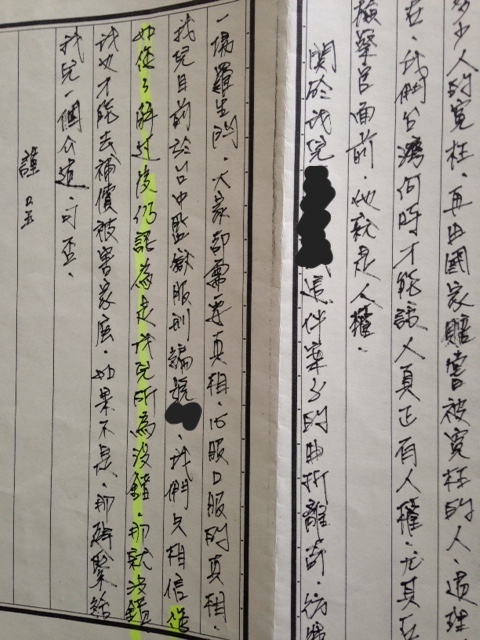 多少人的冤枉．再由國家賠嘗被冤枉的人．道理
在．我們台灣何時才能讓人真正有人權．尤其在
檢察官面前．他就是人權．
關於我兒 這件案子的曲折離奇．彷彿
一場羅生門．大家都需要真相．心服口服的真相．
我兒目前於台中監獄服刑編號 ．我們父相信
如您了解过後仍認為是我兒所為沒錯．那就沒錯
我也才能去補償被害家底．如果不是．那 給
我兒一個公道．可否．
謹呈